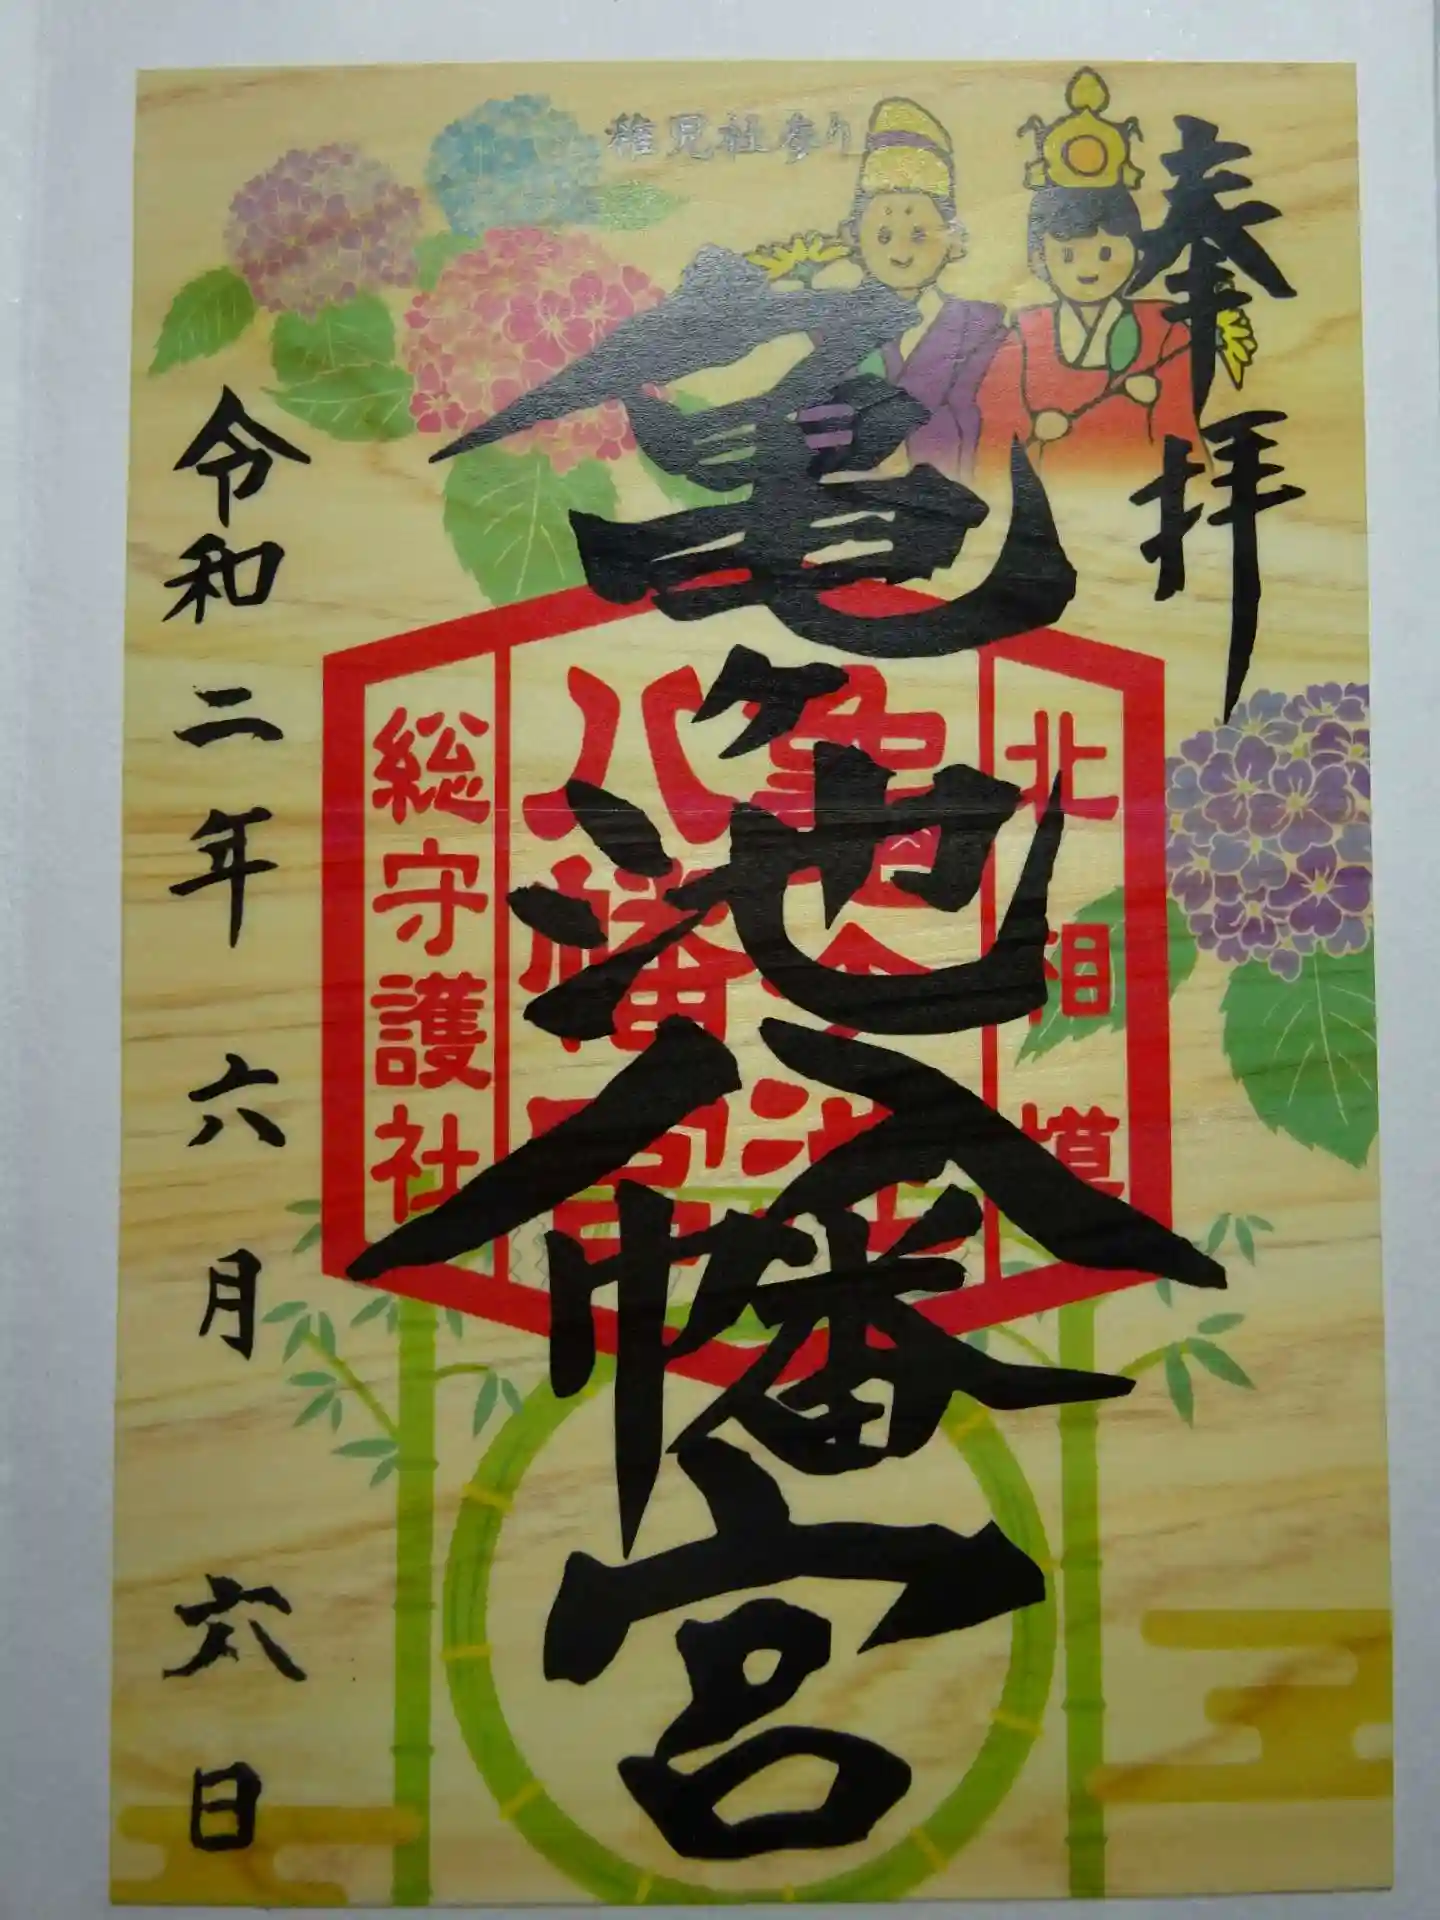 奉拝
稚児社参り
亀ヶ池八幡宮
北相模
亀ヶ池
八幡宮
総守護社
令和二年六月六日